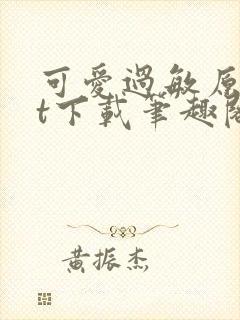 可愛過敏原
t下載筆趣閣
黃振杰